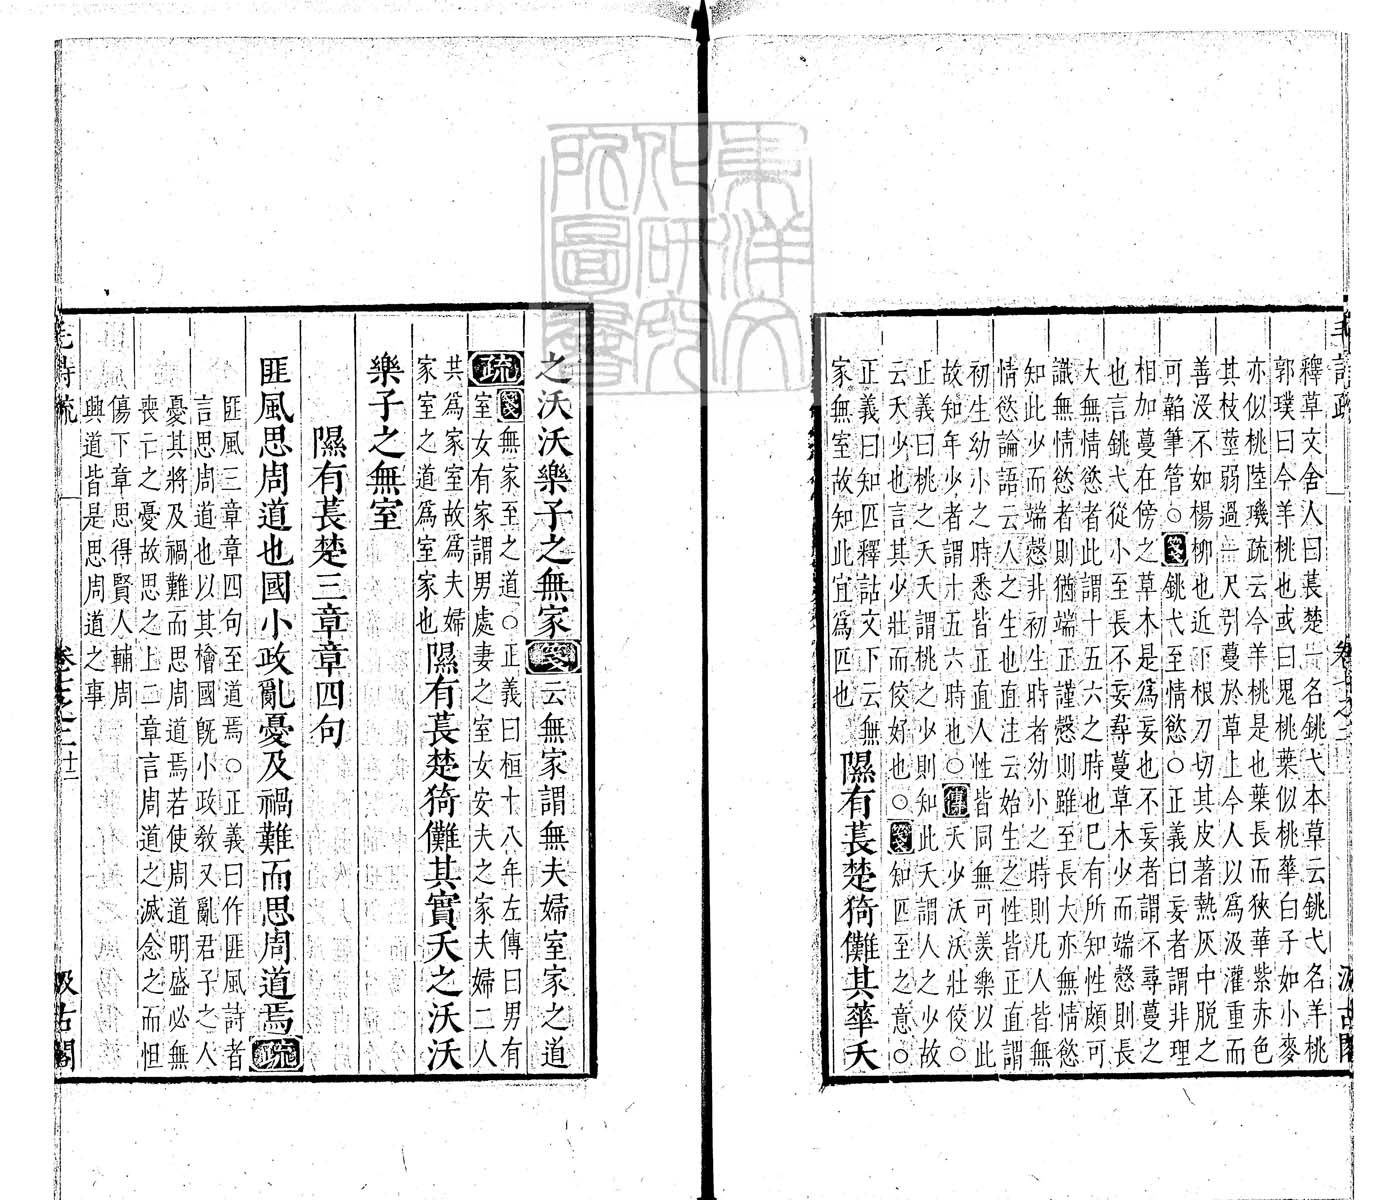 釋草文舍人曰萇楚一名銚弋本草云銚弋名羊桃
郭璞曰今羊桃也或曰鬼桃葉似桃華白子如小麥
亦似桃陸璣疏云今羊桃是也葉長而狹華紫赤色
其枝莖弱過一尺引蔓於草上今人以為汲灌重而
善沒不如楊柳也近下根刀切其皮著熱灰中脫之
可韜筆管○箋銚弋至情慾○正義曰妄者謂非理
相加蔓在傍之草木是為妄也不妄者謂不尋蔓之
也言銚弋從小至長不妄尋蔓草木少而端慤則長
大無情慾者此謂十五六之時也巳有所知性頗可
識無情慾者則猶端正謹慤則雖至長大亦無情慾
知此少而端慤非初生時者幼小之時則凡人皆無
情慾論語云人之生也直注云始生之性皆正直謂
初生幼小之時悉皆正直人性皆同無可羨樂以此
故知年少者謂十五六時也○傳夭少沃沃壯佼○
正義曰桃之夭夭謂桃之少則知此夭謂人之少故
云夭少也言其少壯而佼好也○箋知匹至之意○
正義曰知匹釋詁文下云無
家無室故知此宜為匹也
隰有萇楚猗儺其華夭
之沃沃樂子之無家箋云無家謂無夫婦室家之道
疏箋無家至之道○正義曰桓十八年左傳曰男有
室女有家謂男處妻之室女安夫之家夫婦二人
共為家室故為夫婦
家室之道為室家也
隰有萇楚猗儺其實夭之沃沃
樂子之無室
隰有萇楚三章章四句
匪風思周道也國小政亂憂及禍難而思周道焉疏
匪風三章章四句至道焉○正義曰作匪風詩者
言思周道也以其檜國旣小政敎又亂君子之人
憂其將及禍難而思周道焉若使周道明盛必無
喪亡之憂故思之上二章言周道之滅念之而怛
傷下章思得賢人輔周
興道皆是思周道之事
毛詩疏
卷七之二
汲古閣
東洋文
化研究
所圖書